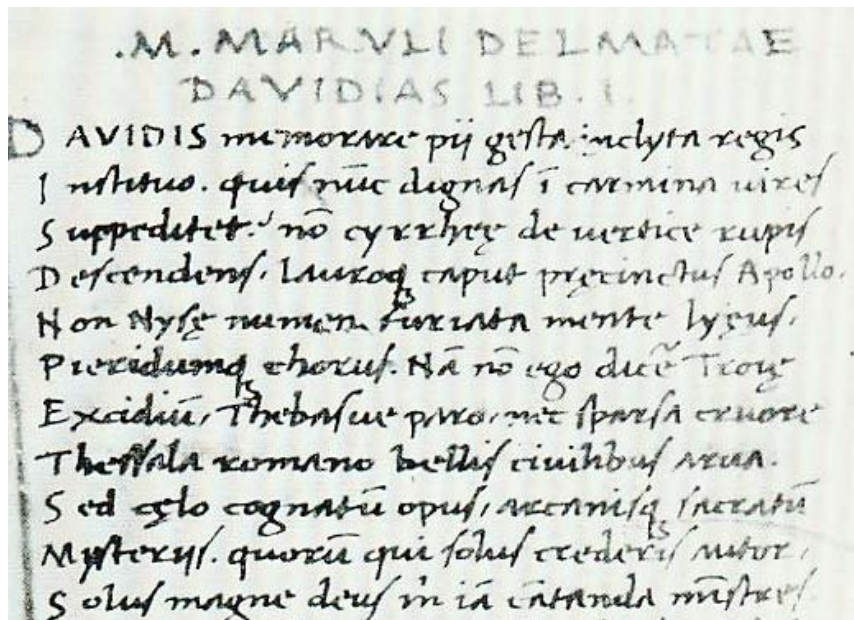 .M. MARVLI DELMATAE
DAVIDIAS LIB. I.
DAVIDIS memorare pij gesta inclyta regis
Instituo. quis nũc dignas ĩ carmina uires
Suppeditet? nõ cyrrhęę de uertice rupis
Descendens, lauroq; caput pręcinctus Apollo.
Non Nysę numen furiata mente lyęus,
Pieridumq; chorus. Nã nõ ego dicẽ Troię
Excidiũ, Thebasue paro, nec sparsa cruore
Thessala romano bellis ciuilibus arua.
Sed cęlo cognatũ opus, arcanisq; sacratũ
Mysterijs. quorũ qui solus crederis autor,
Solus magne deus m̃ iã cãtanda mĩstres.